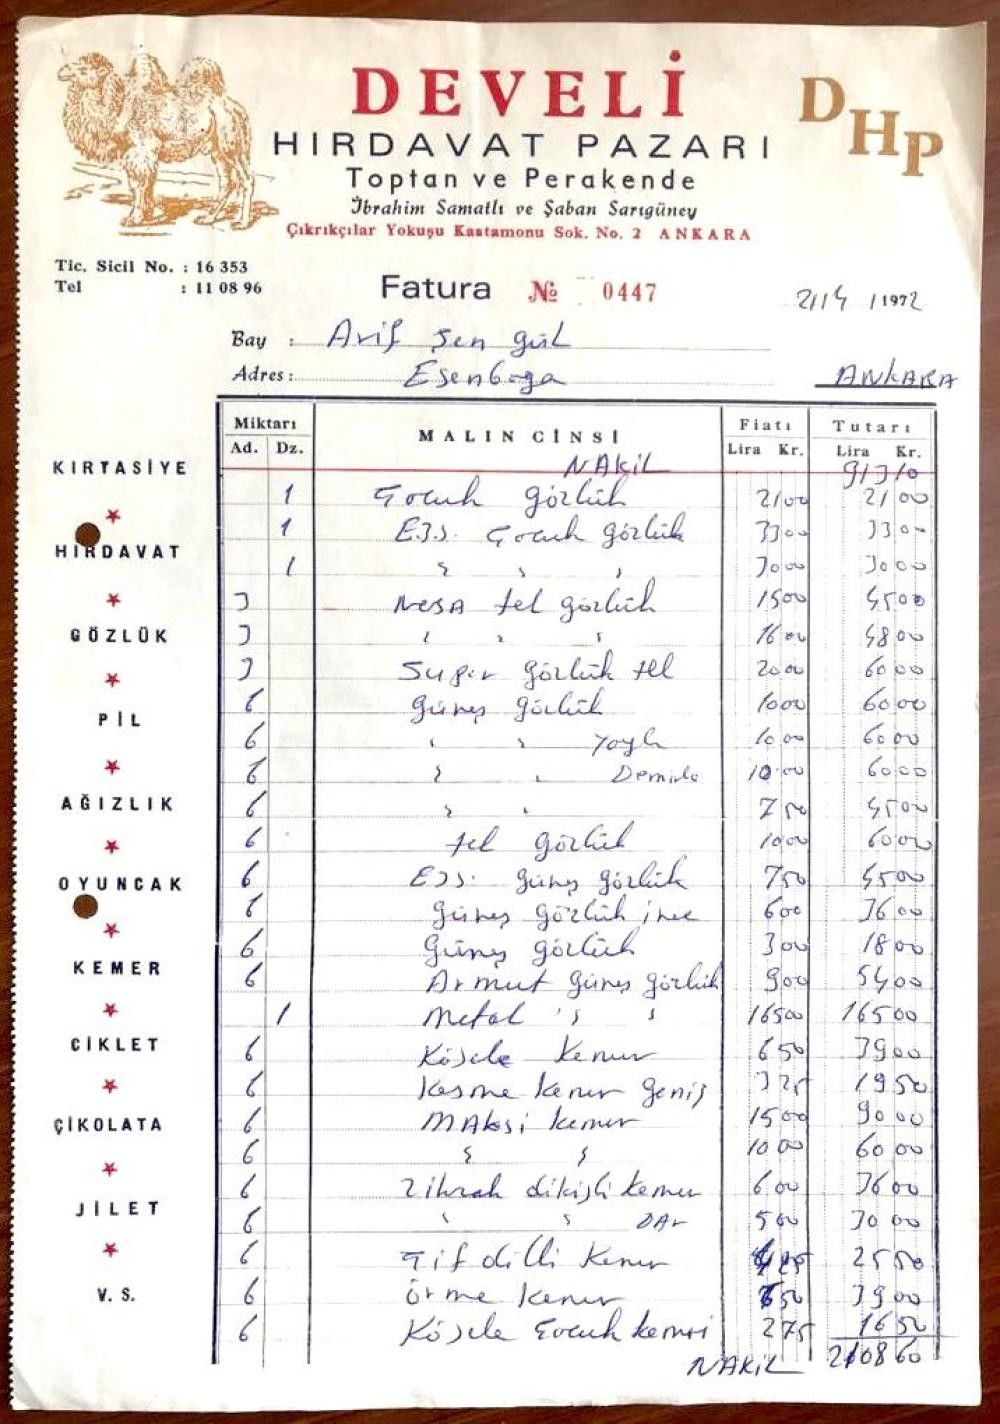 DEVELİ
DHP
HIRDAVAT PAZARI
Toptan ve Perakende
İbrahim Samatlı ve Şaban Sarıgüney
Çıkrıkçılar Yokuşu Kastamonu Sok. No. 2 ANKARA
Tic. Sicil No. : 16 353
Tel : 11 08 96
Fatura № 0447
2/14/1972
Bay : Arif Şen gül
Adres : Esenboga ANKARA
Miktarı MALIN CİNSİ Fiatı Tutarı
Ad. Dz. Lira Kr. Lira Kr.
KIRTASİYE
HIRDAVAT
GÖZLÜK
PİL
AĞIZLIK
OYUNCAK
KEMER
CİKLET
ÇİKOLATA
JİLET
V. S.
NAKİL 91310
1 Çocuk gözlük 2100 2100
1 Ejs. Çocuk gözlük 3300 3300
1 " " " 3000 3000
3 Nesa tel gözlük 1500 4500
3 " " " 1600 4800
3 Super gözlük tel 2000 6000
6 güneş gözlük 1000 6000
6 " " 1000 6000
6 " " 1000 6000
6 " " 750 4500
6 tel gözlük 1000 6000
6 güneş gözlük 750 4500
6 güneş gözlük ince 600 3600
6 güneş gözlük 300 1800
6 Armut güneş gözlük 900 5400
1 Metal " " 16500 16500
6 Kösele kemer 650 3900
6 Kesme kemer geniş 325 1950
6 Maksi kemer 1500 9000
6 " " 1000 6000
6 dikişli kemer 600 3600
6 " " DAr 500 3000
6 Çif dilli kemer 425 2550
6 örme kemer 650 3900
6 Kösele Çocuk kemeri 275 1650
NAKİL 210860